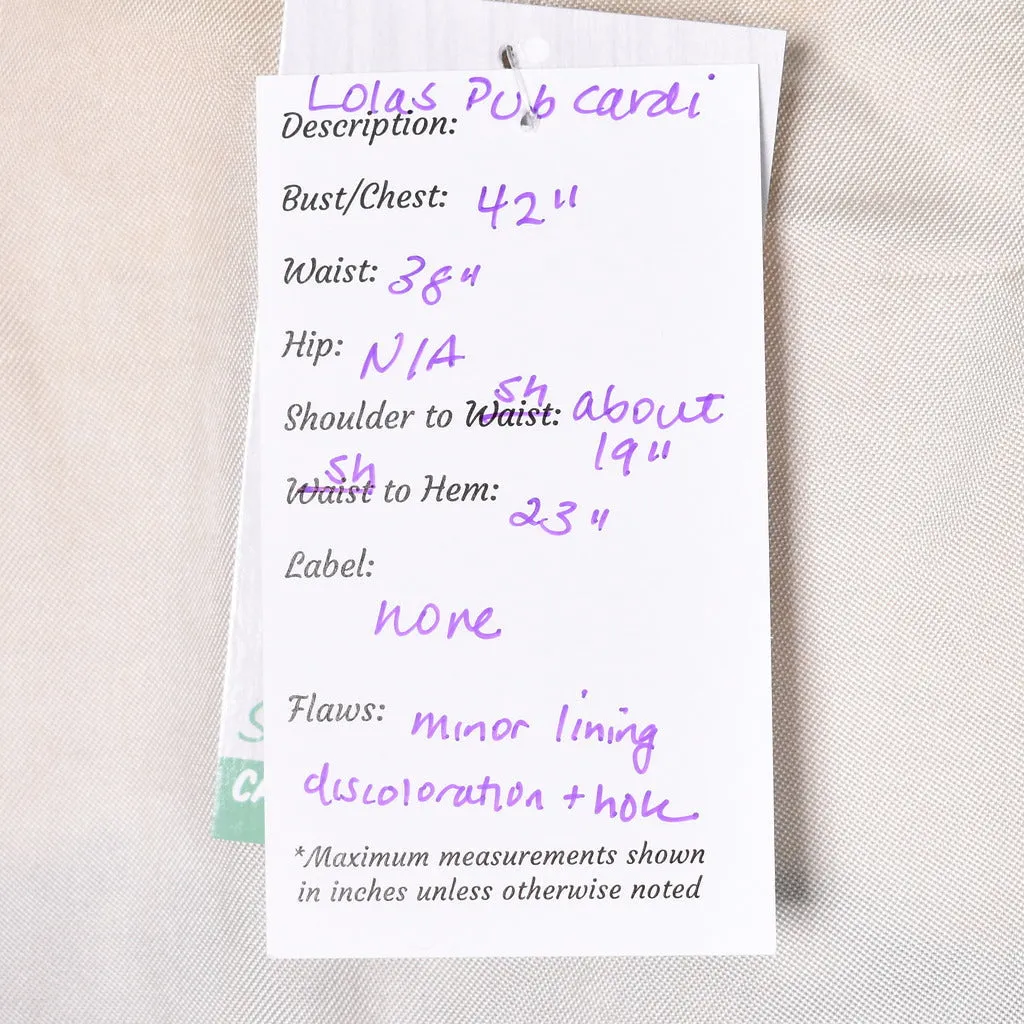 Lolas Pub cardi
Description:
Bust/Chest: 42"
Waist: 38"
Hip: N/A
sh
Shoulder to Waist: about
19"
sh
Waist to Hem:
23"
Label:
none
Flaws: minor lining
discoloration + hole
*Maximum measurements shown
in inches unless otherwise noted